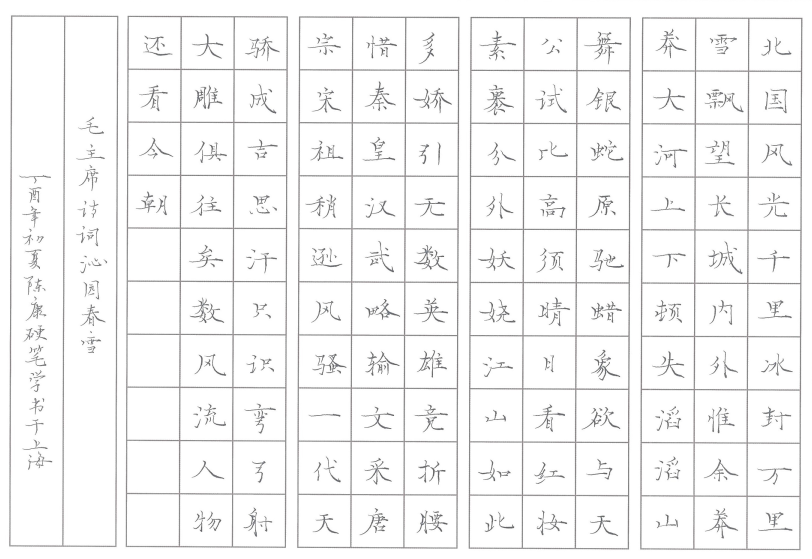 北国风光千里冰封万里
雪飘望长城内外惟余莽
莽大河上下顿失滔滔山
舞银蛇原驰蜡象欲与天
公试比高须晴日看红妆
素裹分外妖娆江山如此
多娇引无数英雄竞折腰
惜秦皇汉武略输文采唐
宗宋祖稍逊风骚一代天
骄成吉思汗只识弯弓射
大雕俱往矣数风流人物
还看今朝
毛主席诗词沁园春雪
丁酉年初夏陈康硬笔学书于上海